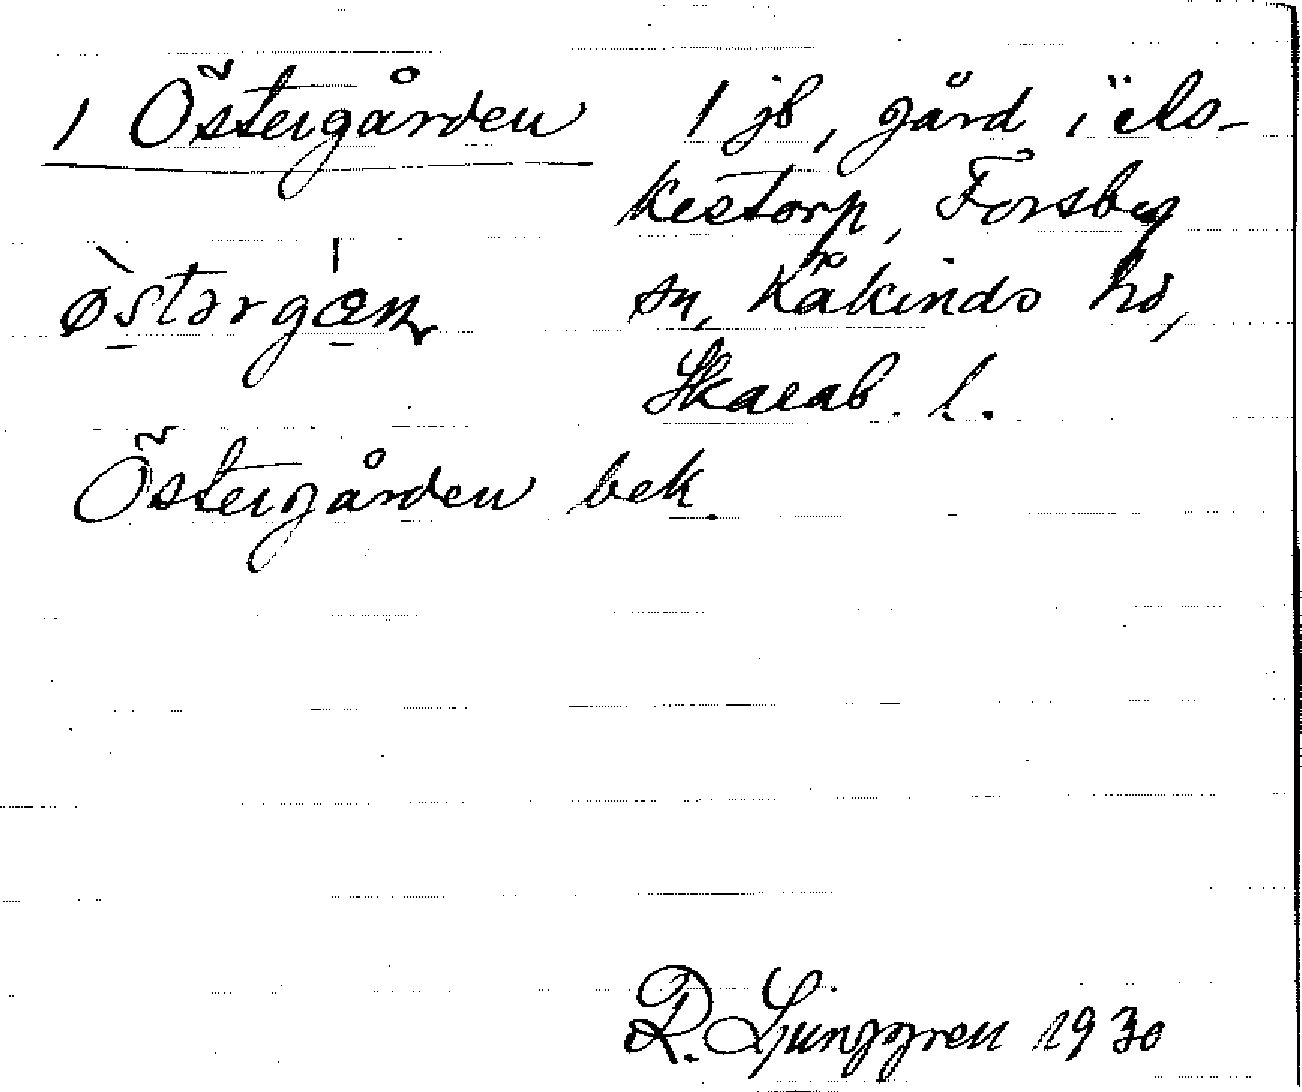 1 Östergården 1 jb, gård i Äls-
kestorp, Forsby
østərgɑn sn, Kåkinds hd,
Skarab. l.
Östergården bek.
R. Ljunggren 1930